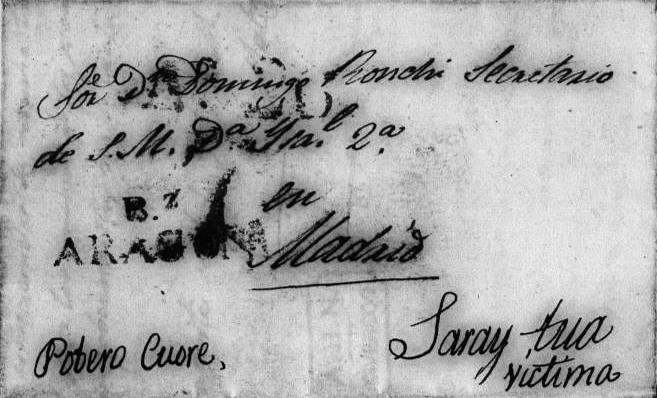 Sor. Dn. Domingo Ronchi Secretario
de S.M. Da. Ysa.l 2a.
en
Madrid
B.z
ARAGON
Pobero Cuore,
Saray tua
victima